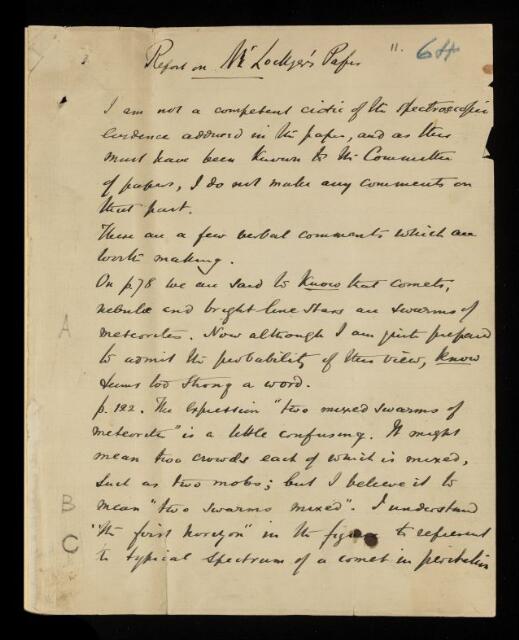 Report on Mr Lockyer's Paper " 64
I am not a competent critic of the spectroscopic
evidence adduced in the paper, and as this
must have been known to the Committee
of papers, I do not make any comments on
that part.
There are a few verbal comments which are
worth making.
On p.78 we are said to know that comets,
nebulæ and bright line stars are swarms of
meteorites. Now although I am quite prepared
A
to admit the probability of this view, know
seems too strong a word.
p. 122. The expression "two mixed swarms of
meteorites" is a little confusing. It might
mean two crowds each of which is mixed,
such as two mobs; but I believe it to
B
mean "two swarms mixed". I understand
C
"the first horizon" in the figure to represent
the typical spectrum of a comet in perihelion